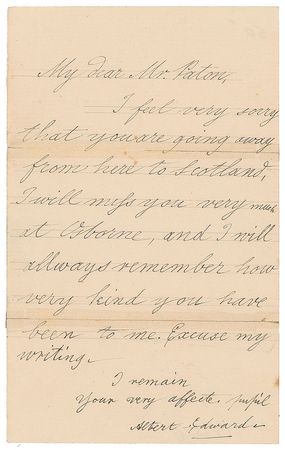 My dear Mr. Paton,
I feel very sorry
that you are going away
from here to Scotland,
I will miss you very much
at Osborne, and I will
allways remember how
very kind you have
been to me. Excuse my
writing.
I remain
Your very affecte. pupil
Albert Edward.